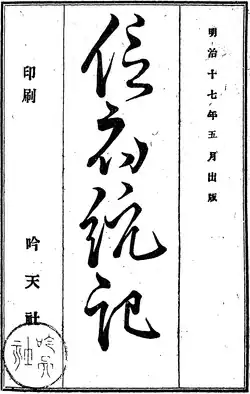 明治十七年五月出版
信府統記
印刷 吟天社